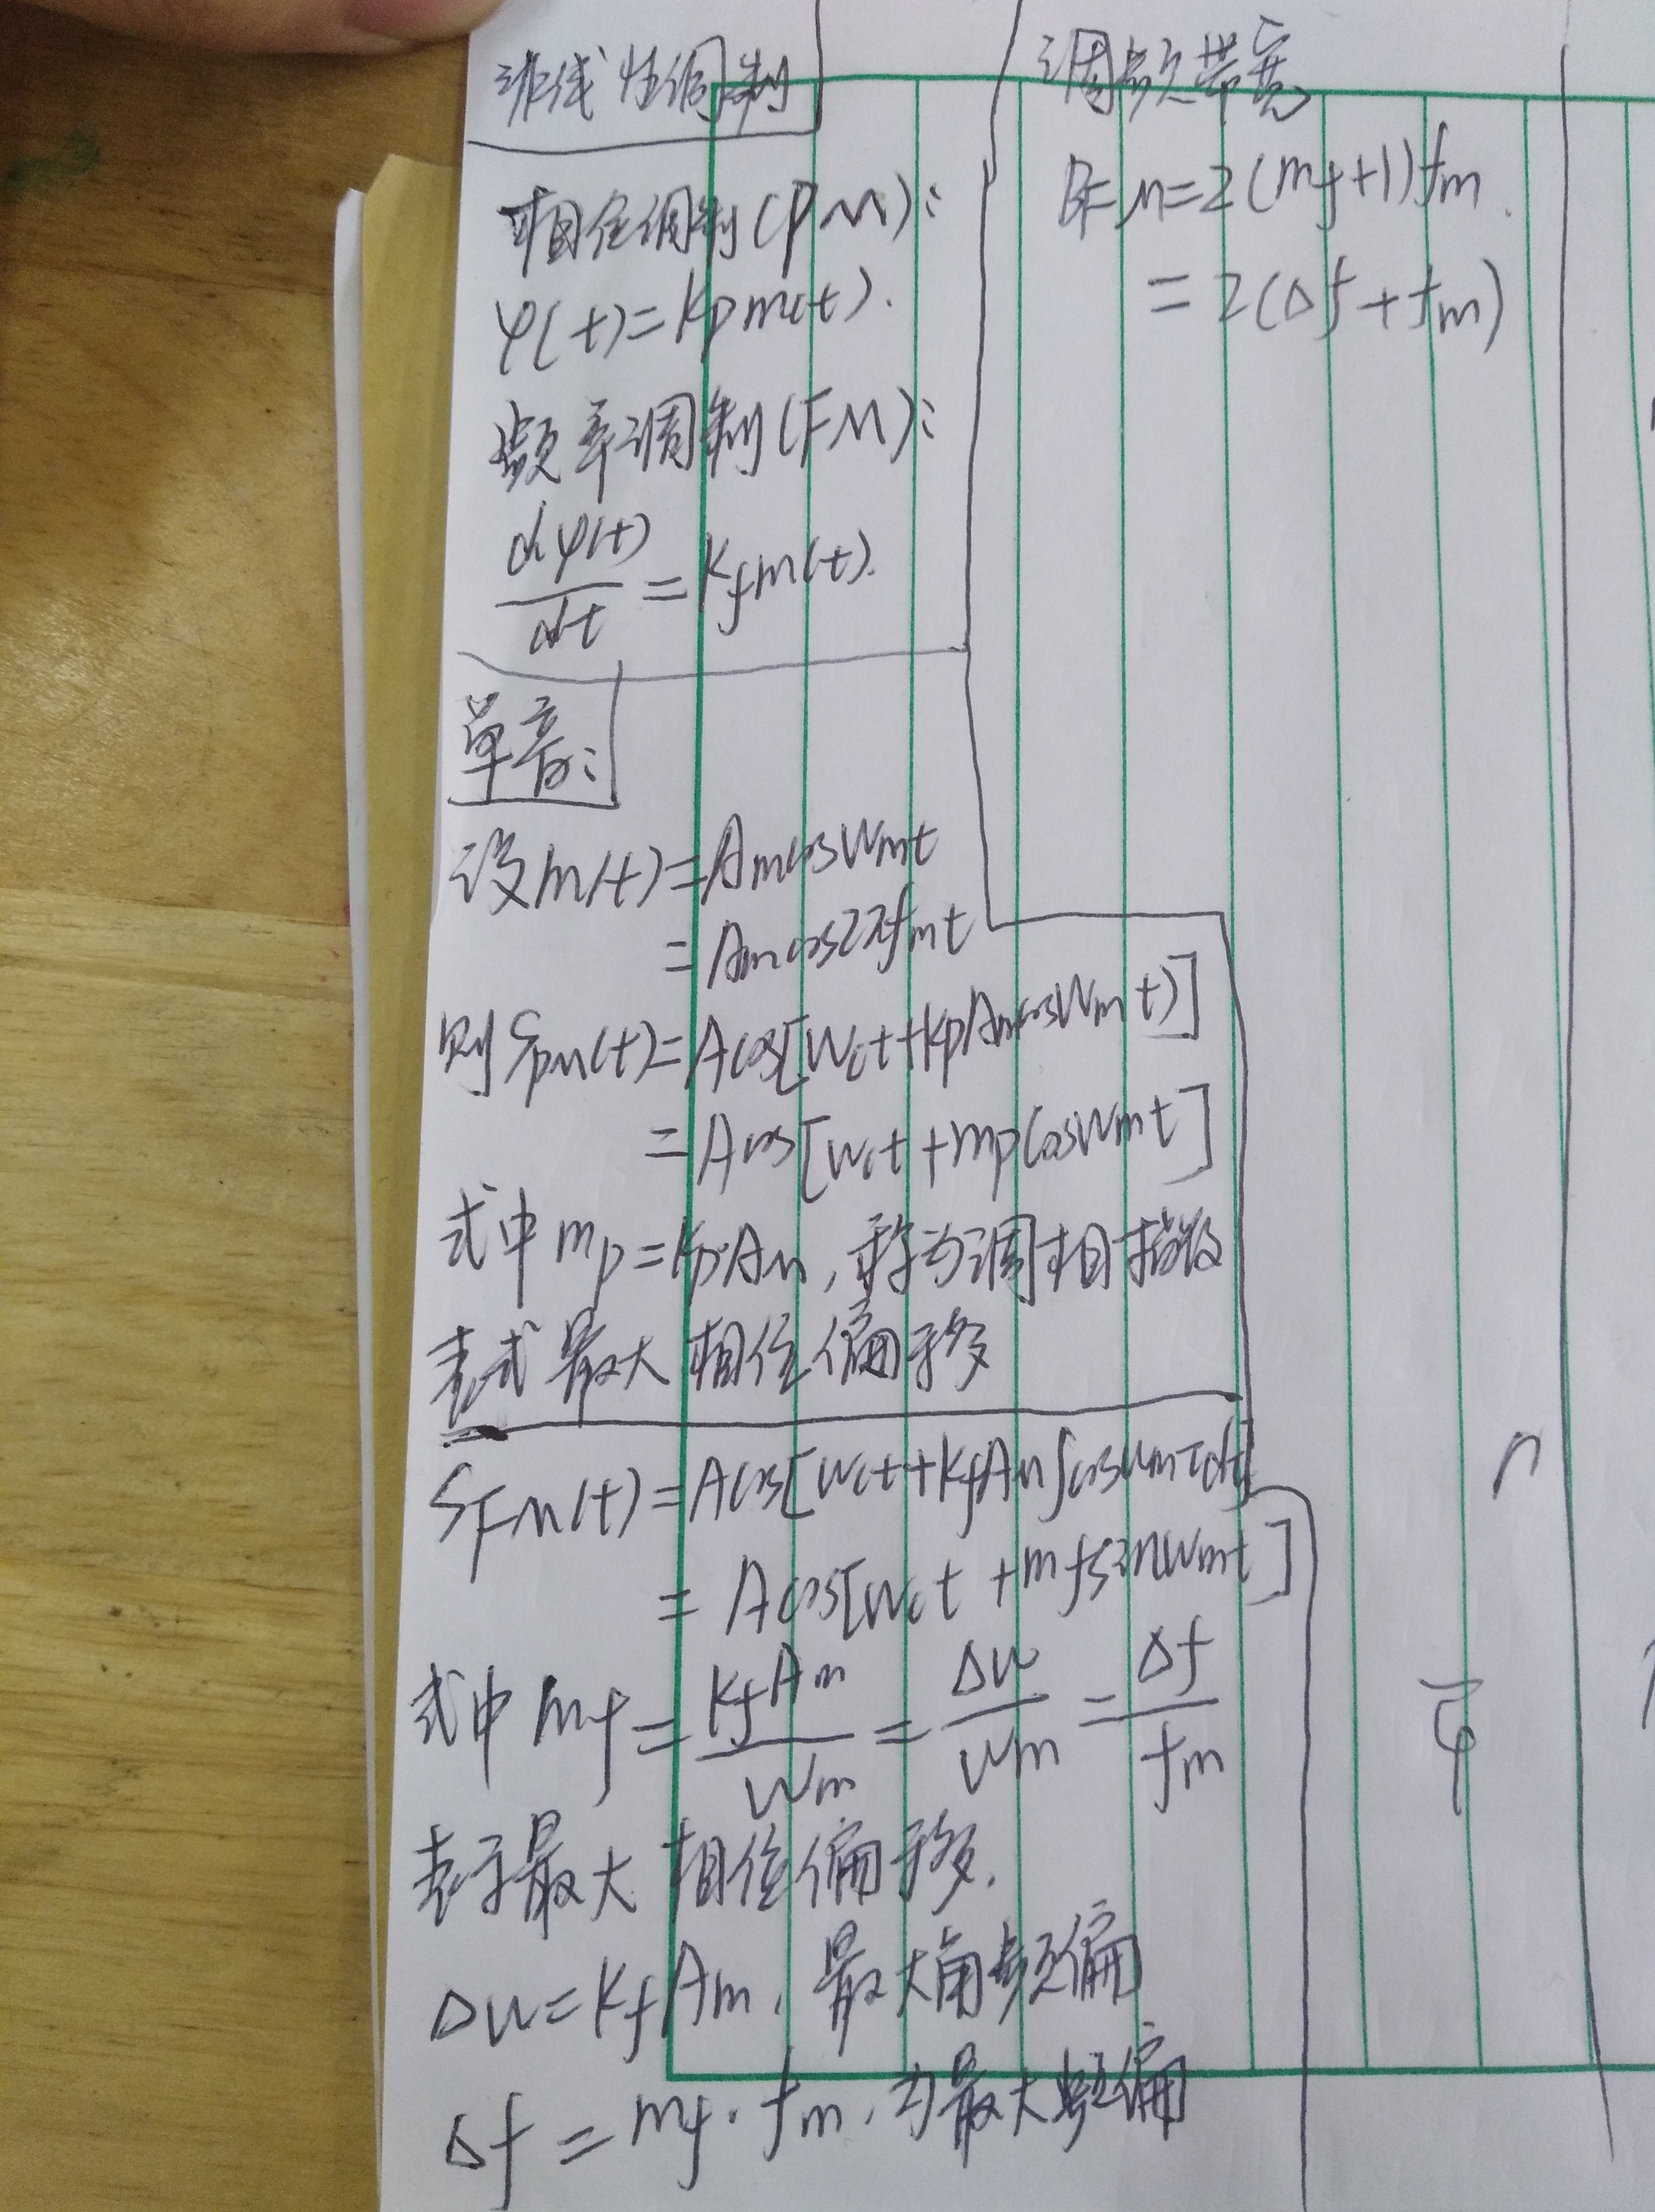 非线性调制
相位调制(PM):
φ(t)=Kpm(t).
频率调制(FM):
dφ(t)/dt=Kfm(t).
单音:
设m(t)=Amcoswmt
=Amcos2πfmt
则SPM(t)=Acos[wct+KpAmcoswmt)]
=Acos[wct+mpcoswmt]
式中mp=KpAm,称为调相指数
表式最大相位偏移
SFM(t)=Acos[wct+KfAm∫coswmτdτ]
=Acos[wct+mfsinwmt]
式中mf=KfAm/wm=Δw/wm=Δf/fm
表示最大相位偏移.
Δw=KfAm,最大角频偏
Δf=mf·fm,为最大频偏
调频带宽
BFM=2(mf+1)fm.
=2(Δf+fm)